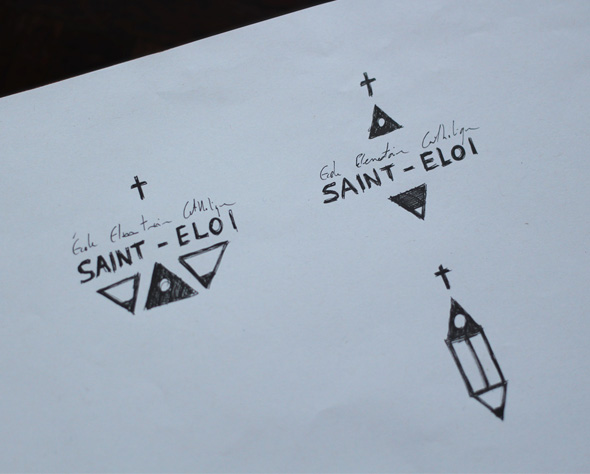 École Elementaire Catholique
SAINT-ELOI
Ecole Elementaire Catholique
SAINT-ELOI